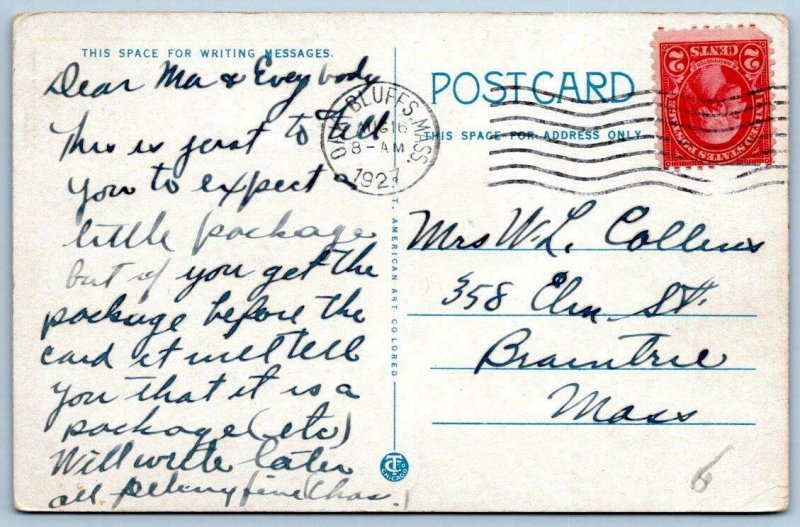 THIS SPACE FOR WRITING MESSAGES.
Dear Ma & Everybody
This is just to tell
you to expect a
little package
but if you get the
package before the
card it will tell
you that it is a
package (etc)
Will write later
all feeling fine Chas.
POSTCARD
THIS SPACE FOR ADDRESS ONLY
OAK BLUFFS, MASS.
AUG 16
8-AM
1927
2 CENTS 2
UNITED STATES POSTAGE
Mrs W. L. Collins
358 Elm St.
Braintree
Mass
C.T. AMERICAN ART COLORED
CT CHICAGO
6